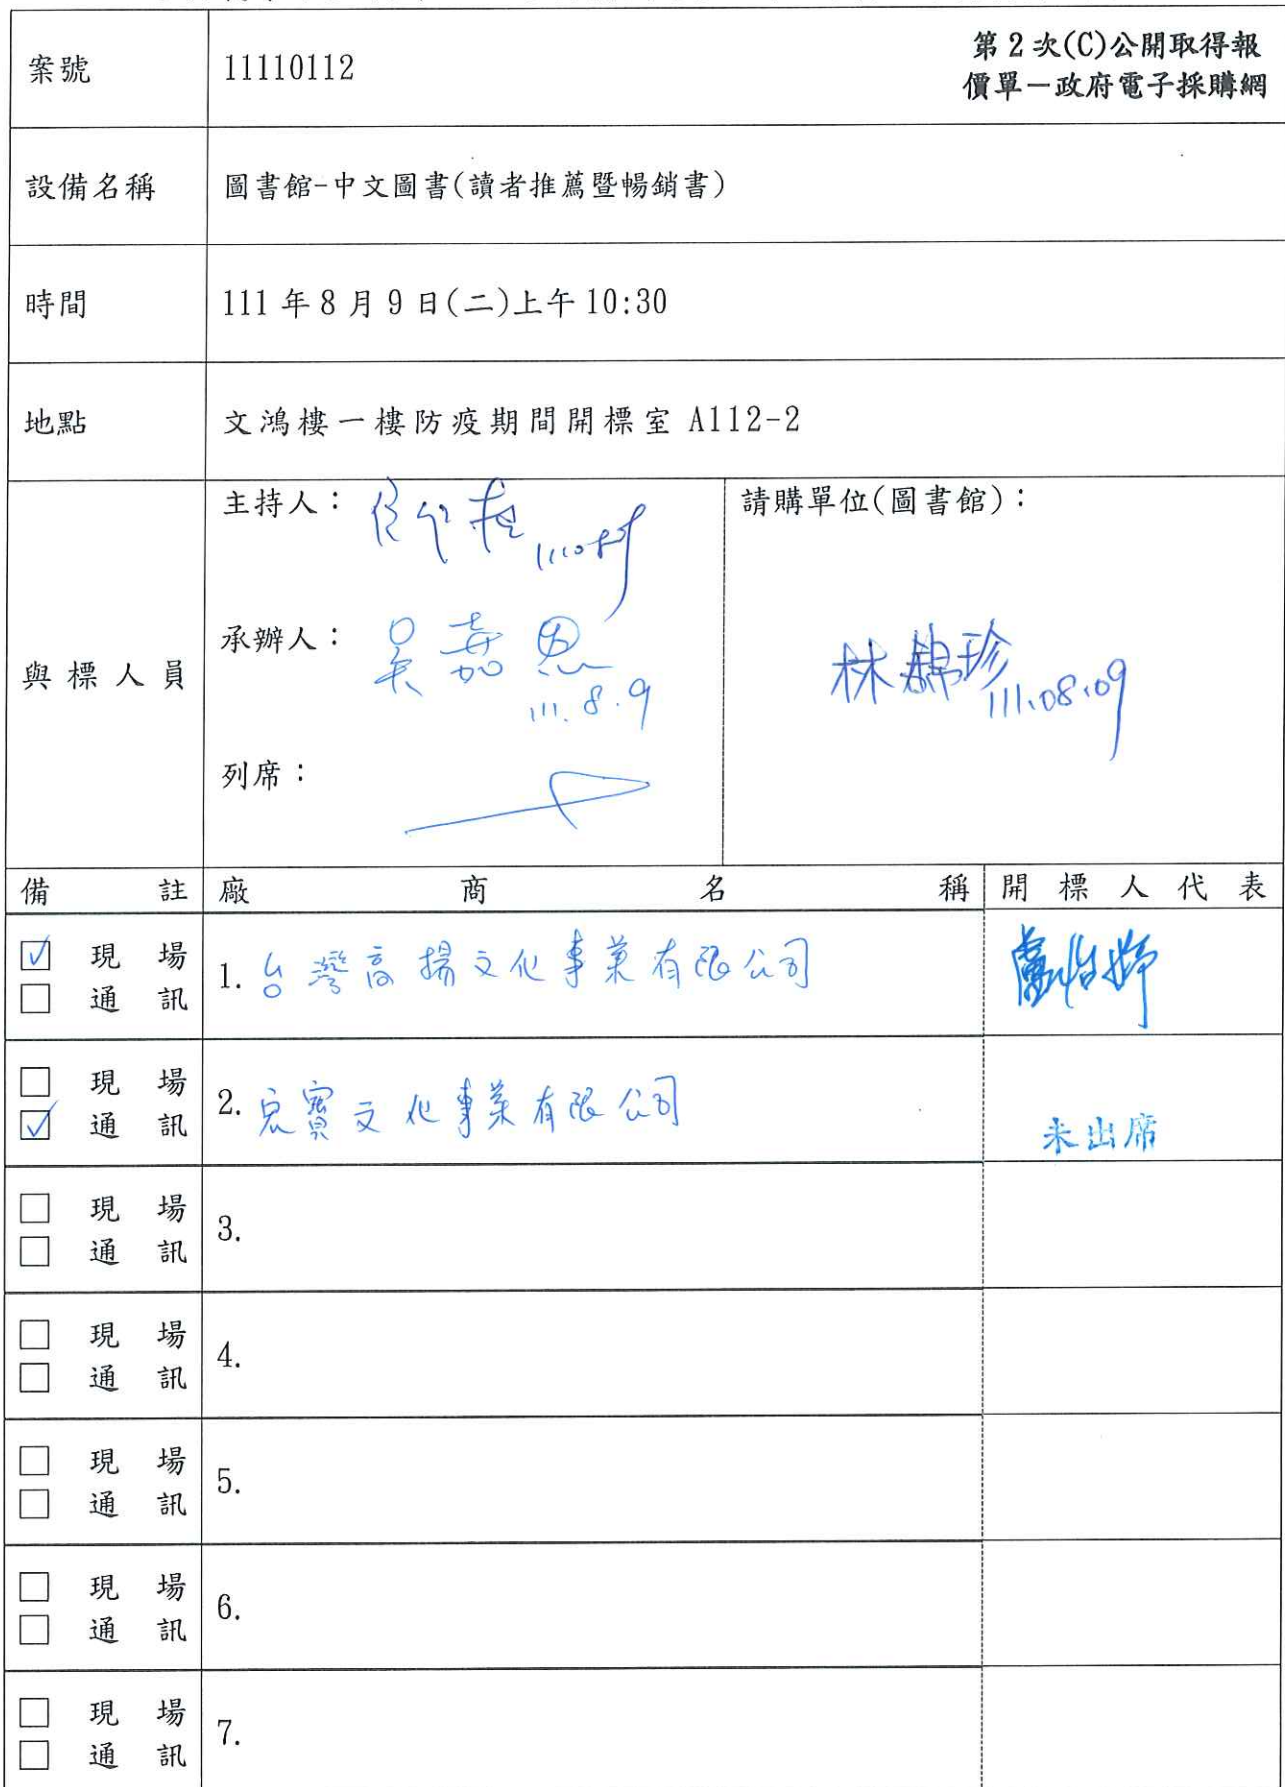 案號 11110112 第2次(C)公開取得報
價單－政府電子採購網
設備名稱 圖書館-中文圖書(讀者推薦暨暢銷書)
時間 111年8月9日(二)上午10:30
地點 文鴻樓一樓防疫期間開標室 A112-2
與標人員
主持人：
承辦人：吳嘉恩
111.8.9
列席：
請購單位(圖書館)：
林錦珍 111.08.09
備註 廠商名稱 開標人代表
☑ 現場
☐ 通訊
1. 台灣高揚文化事業有限公司
盧怡婷
☐ 現場
☑ 通訊
2. 宏寶文化事業有限公司
未出席
☐ 現場
☐ 通訊
3.
☐ 現場
☐ 通訊
4.
☐ 現場
☐ 通訊
5.
☐ 現場
☐ 通訊
6.
☐ 現場
☐ 通訊
7.